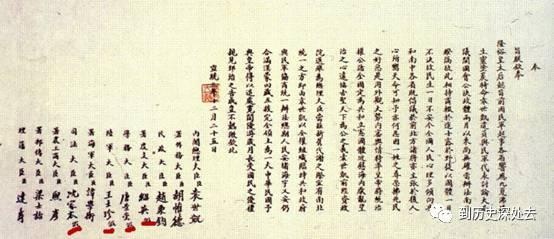 奉
旨朕欽奉
隆裕皇太后懿旨前因國民軍起事各省響應九夏沸騰
生靈塗炭特命袁世凱遣員與民軍代表討論大局
議開國會公決政體兩月以來尚無確當辦法南北
暌隔彼此相持商輟於途士露於野徒以國體一日
不決故民生一日不安今全國人民心理多傾向共
和南中各省既倡議於前北方諸將亦主張於後人
心所嚮天命可知予亦何忍因一姓之尊榮拂兆民
之好惡是用外觀大勢內審輿情特率皇帝將統治
權公諸全國定為共和立憲國體近慰海內厭亂望
治之心遠協古聖天下為公之義袁世凱前經資政
院選舉為總理大臣當茲新舊代謝之際宜有南北
統一之方即由袁世凱以全權組織臨時共和政府
與民軍協商統一辦法總期人民安堵海宇乂安仍
合滿漢蒙回藏五族完全領土為一大中華民國予
與皇帝得以退處寬閒優游歲月長受國民之優禮
親見郅治之告成豈不懿歟欽此
宣統三年十二月二十五日
內閣總理大臣臣袁世凱
署外務大臣臣胡惟德
民政大臣臣趙秉鈞
署度支大臣臣紹英假
學務大臣臣唐景崇假
陸軍大臣臣王士珍假
署海軍大臣臣譚學衡
司法大臣臣沈家本假
署農工商大臣臣熙彥
署郵傳大臣臣梁士詒
理藩大臣臣達壽
到历史深处去